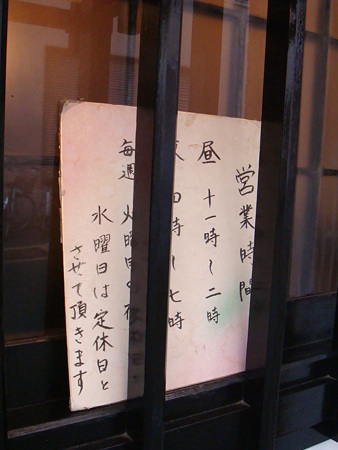 営業時間
昼 十一時〜二時
四時〜七時
毎週 火曜日の夜
水曜日は定休日と
させて頂きます